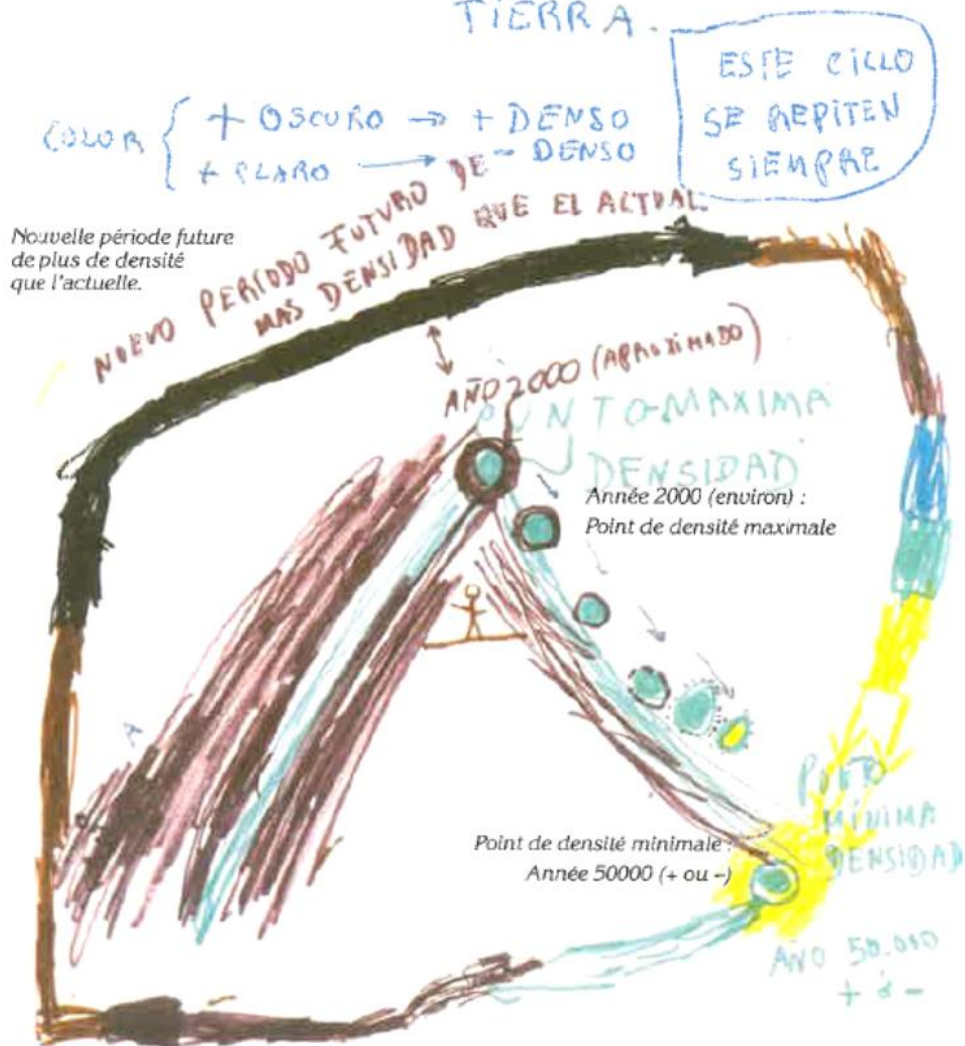 TIERRA.
ESTE CICLO
SE REPITEN
SIEMPRE
COLOR { + OSCURO → + DENSO
+ CLARO → - DENSO
Nouvelle période future
de plus de densité
que l'actuelle.
NUEVO PERÍODO FUTURO DE
MAS DENSIDAD QUE EL ACTUAL.
AÑO 2000 (APROXIMADO)
PUNTO-MAXIMA
DENSIDAD
Année 2000 (environ) :
Point de densité maximale
A
Point de densité minimale :
Année 50000 (+ ou –)
PUNTO
MÍNIMA
DENSIDAD
AÑO 50.000
+ ó -